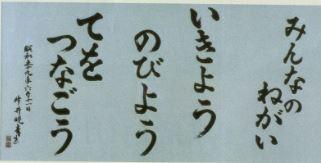 みんなの
ねがい
いきよう
のびよう
てを
つなごう
昭和五十九年六月十一日